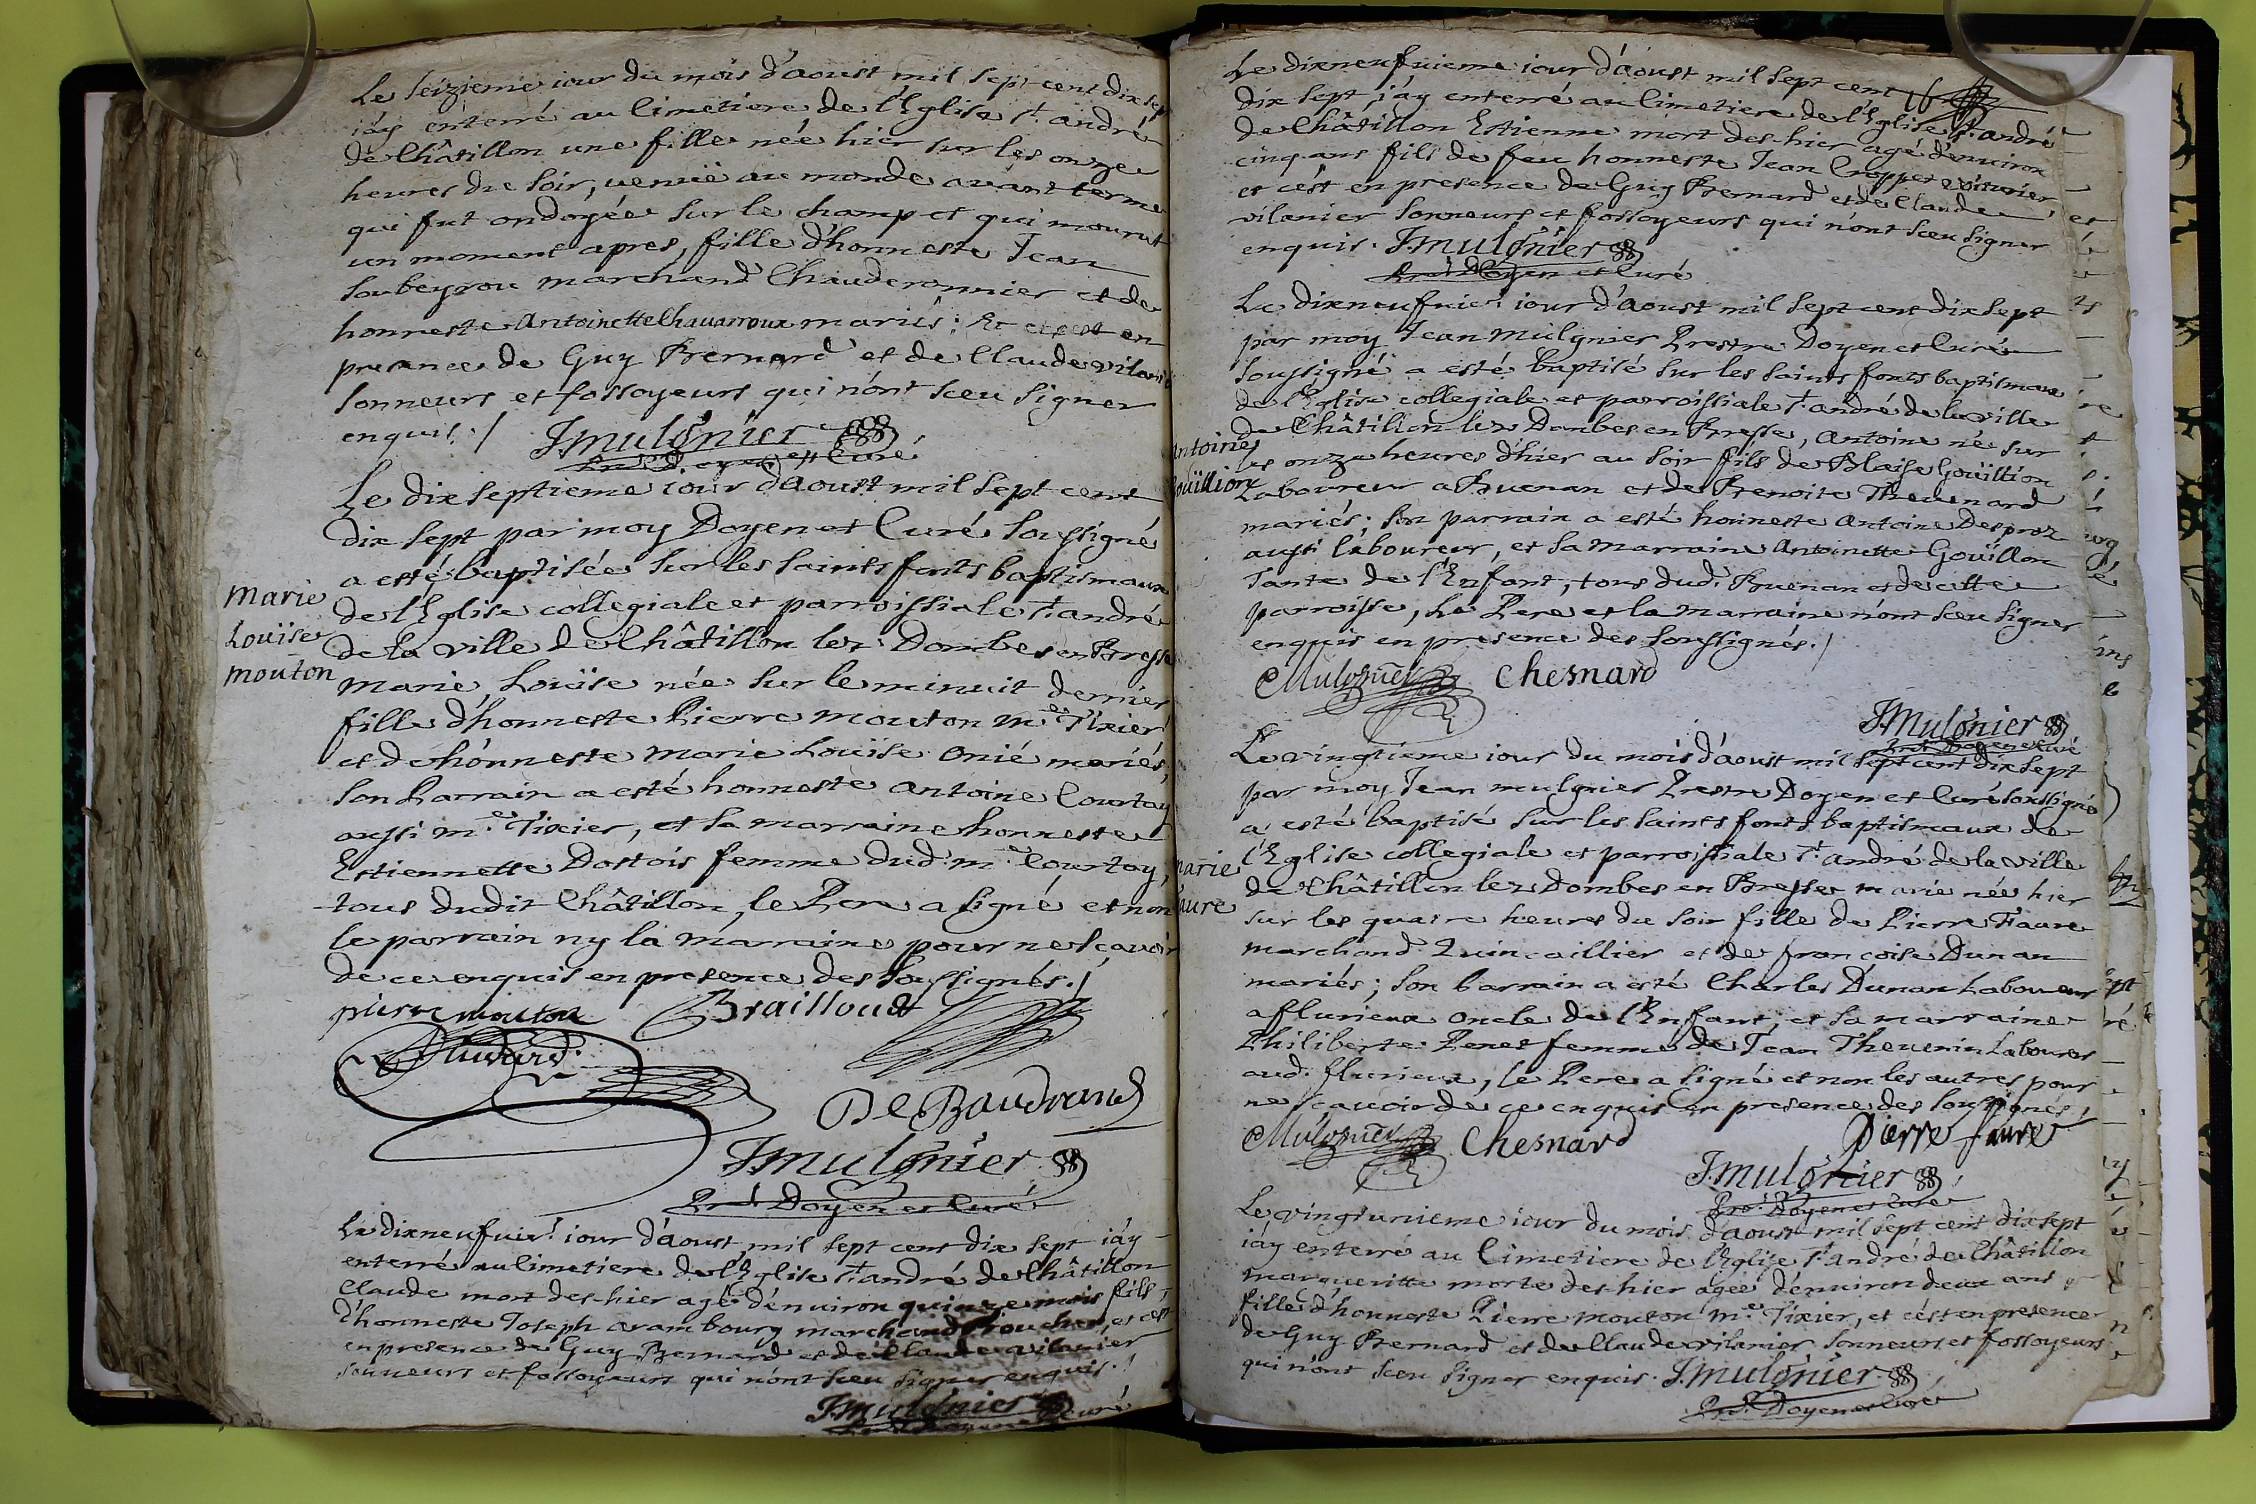 Le seizieme iour du mois d'aoust mil sept cent dix sept
i'ay enterré au Cimetiere de l'Eglise St. andré
de Châtillon une fille née hier sur les onze
heures du soir, venuë au monde avant terme
qui fut ondoyée sur le champ et qui mourut
un moment apres, fille d'honneste Jean
Soubeyrou marchand Chauderonnier et de
honneste Antoinette Chavarroux mariés; Et c'est en
presence de Guy Bernard et de Claude vilanier
sonneurs et fossoyeurs qui n'ont sceu signer
enquis./ J. mulgnier
Pre. Doyen et Curé
Le dix septieme iour d'aoust mil sept cent
dix sept par moy Doyen et Curé soussigné
a esté baptisée sur les saints fonts baptismaux
de l'Eglise collegiale et parroissiale St. andré
de la ville de Châtillon lez Dombes en Bresse
marie
Louïse
mouton
Marie Louïse née sur le minuit dernier
fille d'honneste Pierre mouton me. Tixier
et de honneste Marie Louïse Onié mariés,
son Parrain a esté honneste antoine Courtoy
aussi me. Tixier, et sa marraine honneste
Estiennette Dostois femme dud. me. Courtoy,
tous dudit Châtillon, le Pere a signé et non
le parrain ny la marraine pour ne sçavoir
de ce enquis en presence des soussignés./
pierre mouton Brailloud
De Baudrand
J. mulgnier
Pre. Doyen et Curé
Le dixneufvie. iour d'aoust mil sept cent dix sept i'ay
enterré au Cimetiere de l'Eglise St. andré de Châtillon
Claude mort des-hier agé d'environ quinze mois fils
d'honneste Joseph arambourg marchand Boucher, et c'est
en presence de Guy Bernard et de Claude vilanier
sonneurs et fossoyeurs qui n'ont sceu signer enquis./
J. mulgnier
Pre. Doyen et Curé
Le dixneufvieme iour d'aoust mil sept cent
dix sept, i'ay enterré au Cimetiere de l'Eglise St. andré
de Châtillon Estienne mort des-hier agé d'environ
cinq ans fils de feu honneste Jean Croppet voiturier,
et c'est en presence de Guy Bernard et de Claude
vilanier sonneurs et fossoyeurs qui n'ont sceu signer
enquis. J. mulgnier
Pre. Doyen et Curé
Le dixneufvie. iour d'aoust mil sept cent dix sept
par moy Jean Mulgnier Prestre Doyen et Curé
soussigné a esté baptisé sur les saints fonts baptismaux
de l'Eglise collegiale et parroissiale St. andré de la ville
de Châtillon lez Dombes en Bresse, Antoine né sur
Antoine
Goüillion
les onze heures d'hier au soir fils de Blaise Goüillion
Laboureur a Buenan et de Benoite Thevenard
mariés; son parrain a esté honneste Antoine Desproz
aussi laboureur, et sa Marraine Antoinette Goüillon
Tante de l'Enfant, tous dud. Buenan et de cette
parroisse, Le Pere et la marraine n'ont sceu signer
enquis en presence des soussignés./
Mulgnier Chesnard
J. Mulgnier
Pre. Doyen et Curé
Le vingtieme iour du mois d'aoust mil sept cent dix sept
par moy Jean mulgnier Prestre Doyen et Curé soussigné
a esté baptisé sur les saints fonts baptismaux de
l'Eglise collegiale et parroissiale St. andré de la ville
marie
faure
de Châtillon lez Dombes en Bresse marie née hier
sur les quatre heures du soir fille de Pierre Faure
marchand Quincaillier et de françoise Dunan
mariés; son Parrain a esté Charles Dunan Laboureur
a flurieux Oncle de l'Enfant, et sa marraine
Philiberte Penet femme de Jean Thevenin Laboureur
aud. flurieux, le Pere a signé et non les autres pour
ne sçavoir de ce enquis en presence des soussignés./
Mulgnier Chesnard Pierre faure
J. mulgnier
Pre. Doyen et Curé
Le vingtunieme iour du mois d'aoust mil sept cent dix sept
i'ay enterré au Cimetiere de l'Eglise St. andré de Châtillon
margueritte morte des-hier agée d'environ deux ans
fille d'honneste Pierre mouton me. Tixier, et c'est en presence
de Guy Bernard et de Claude vilanier, sonneurs et fossoyeurs
qui n'ont sceu signer enquis. J. mulgnier
Pre. Doyen et Curé